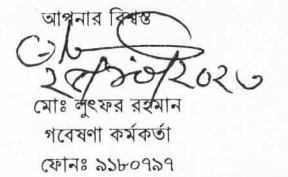 আপনার বিশ্বস্ত
মোঃ লুৎফর রহমান
গবেষণা কর্মকর্তা
ফোনঃ ৯১৮০৭৯৭